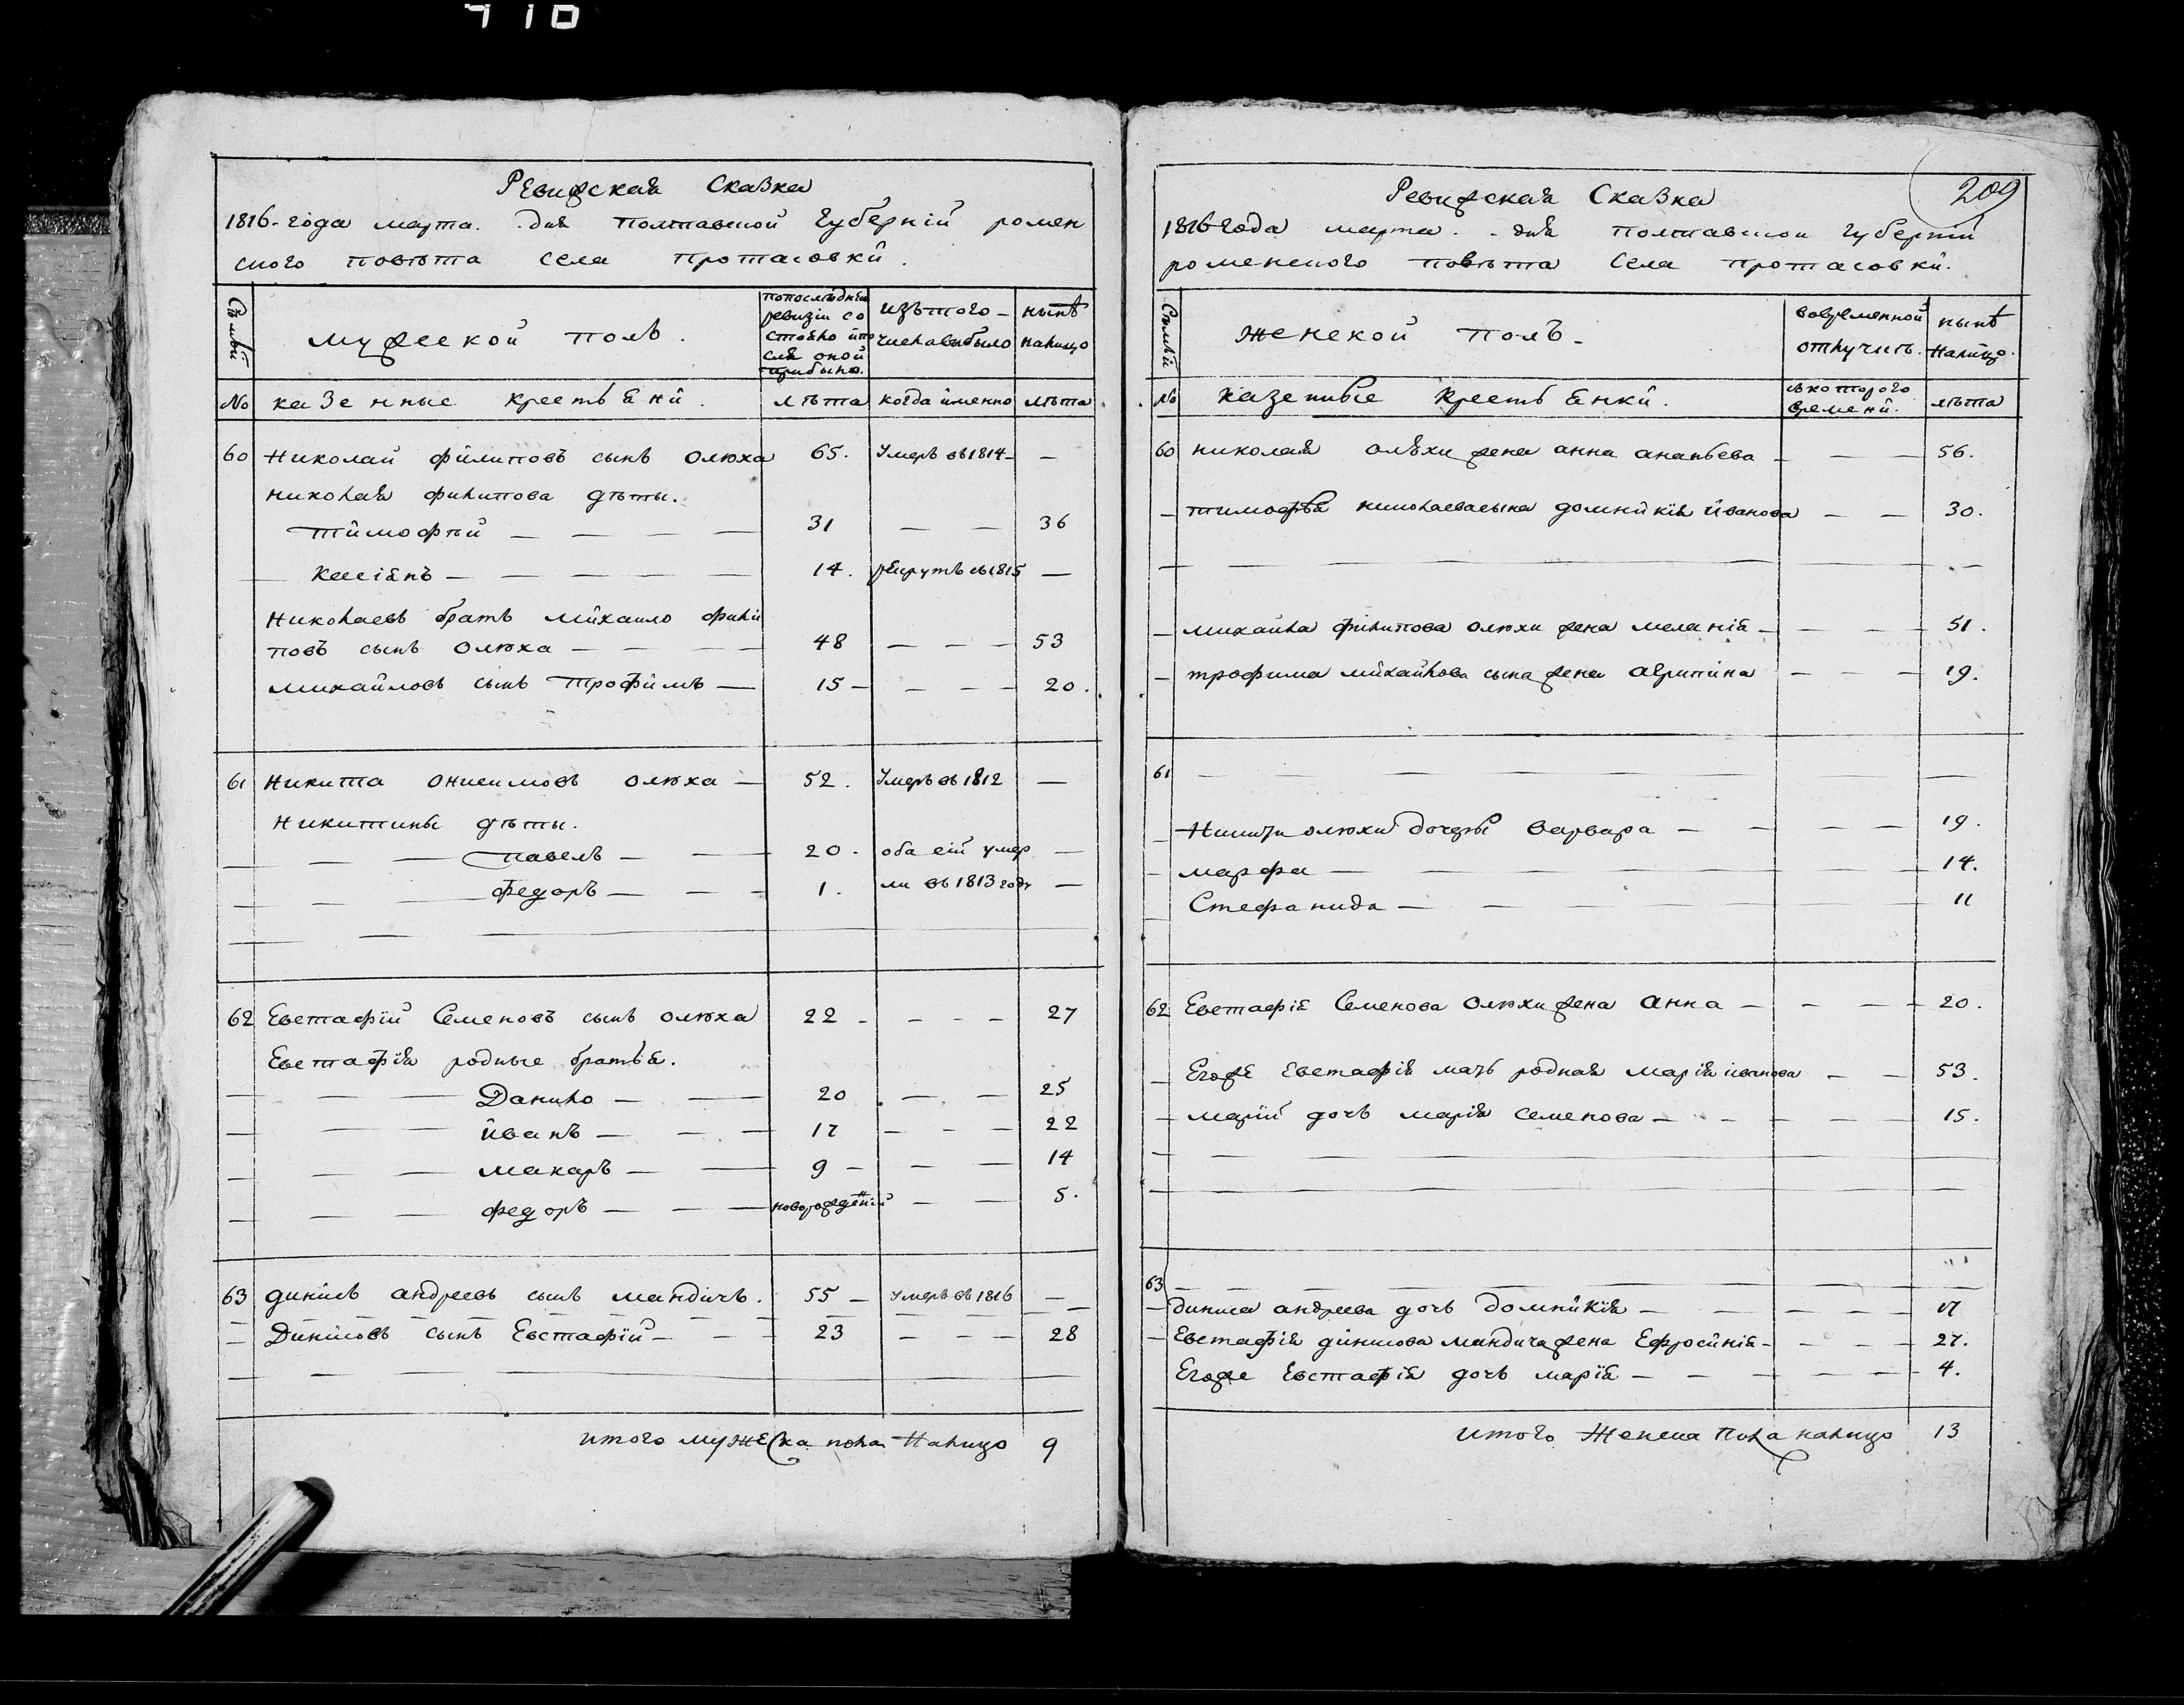 710
Ревижская Сказка
1816-года марта. дня Полтавской Губерніи ромен
ского повѣта села протасовки.
Семьи
мужеской полъ.
по последнеи ревизіи со стояло и по сле оной прибыло.
изъ того числа выбыло
нынѣ налицо
№ казенные крестьяни. лѣта когда именно лѣта
60 Николай филиповъ сынъ Олюха 65. Умеръ въ 1814 —
николая филипова дѣты.
тимофѣй — — — — 31 — — 36
касіянъ — — — — 14. рекрутъ въ 1815 —
Николаевъ братъ михаило фили
повъ сынъ Олюха — — — 48 — — — 53
михайловъ сынъ Трофимъ — 15 — — — — 20.
61 Никита онисимовъ олюха — 52. Умеръ въ 1812 —
Никитины дѣты.
— — — павелъ — — 20. оба сіи умер —
— — — федоръ — — — 1. ли въ 1813 годѣ —
62 Евстафій Семеновъ сынъ олюха 22 — — — — 27
Евстафія родные братья.
— — — Данило — — 20 — — — 25
— — — иванъ — — — 17 — — — 22
— — — макаръ — — 9 — — — 14
— — — федоръ — — — новорожденій — — 5.
63 динисъ андреевъ сынъ мандичъ. 55 — умеръ въ 1816 —
— Динисовъ сынъ Евстафій — — — 23 — — — 28
итого мужеска пола налицо 9
209
Ревижская Сказка
1816 года марта . . дня полтавской губерніи
роменского повѣта села протасовки.
Семьи
женской полъ.
во временной отлучкѣ.
нынѣ налицо.
№ казенные крестьянки. съ которого времени. лѣта
60 николая олѣхи жена анна ананьева — — — 56.
— тимофѣя николаева сына домникія иванова — — 30.
— михаила филипова олюхи жена меланія — — — 51.
— трофима михайлова сына жена агрипина — — — 19.
61 — — — — — —
— Никиты олюхи дочеры варвара — — — — 19.
— марфа — — — — — 14.
— Стефанида — — — — — 11
62 Евстафія Семенова Олюхи жена анна — — — — 20.
— Егоже Евстафія мать родная марія иванова — — 53.
— маріи дочь марія семенова — — — — 15.
63 — — — — — —
— диниса андреева дочь домникія — — — — 17
— Евстафія динисова мандича жена Ефросинія — — — 27.
Егоже Евстафія дочь марія — — — — — 4.
итого Женска пола налицо 13